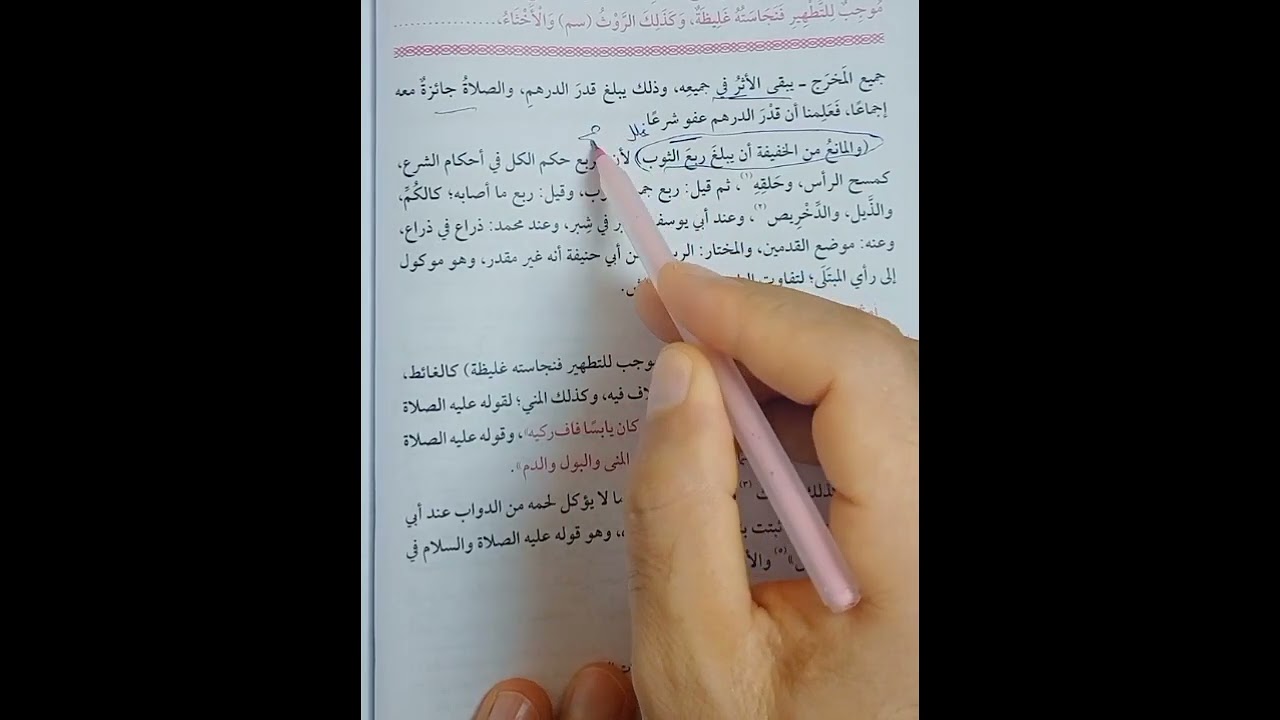 مُوجِبٌ لِلتَّطْهِيرِ فَنَجَاسَتُهُ غَلِيظَةٌ، وَكَذَلِكَ الرَّوْثُ (سم) وَالْأَخْثَاءُ،
جميع المَخرَج ــ يبقى الأثرُ في جميعِه، وذلك يبلغ قدرَ الدرهمِ، والصلاةُ جائزةٌ معه
إجماعًا، فَعَلِمنا أن قدْرَ الدرهم عفو شرعًا.
(والمانعُ من الخفيفة أن يبلغَ ربعَ الثوب) لأن ربع حكم الكل في أحكام الشرع،
كمسح الرأس، وحَلقِهِ(١)، ثم قيل: ربع وقيل: ربع ما أصابه؛ كالكُمِّ،
والذَّيل، والدِّخْرِيص(٢)، وعند أبي يوسف في شِبر، وعند محمد: ذراع في ذراع،
وعنه: موضع القدمين، والمختار: أبي حنيفة أنه غير مقدر، وهو موكول
إلى رأي المبتَلَى؛ لتفاوت
موجب للتطهير فنجاسته غليظة) كالغائط،
فيه، وكذلك المني؛ لقوله عليه الصلاة
كان يابسًا فافركيه»، وقوله عليه الصلاة
المنى والبول والدم».
(٣) ما لا يؤكل لحمه من الدواب عند أبي
ثبتت وهو قوله عليه الصلاة والسلام في
(٥)